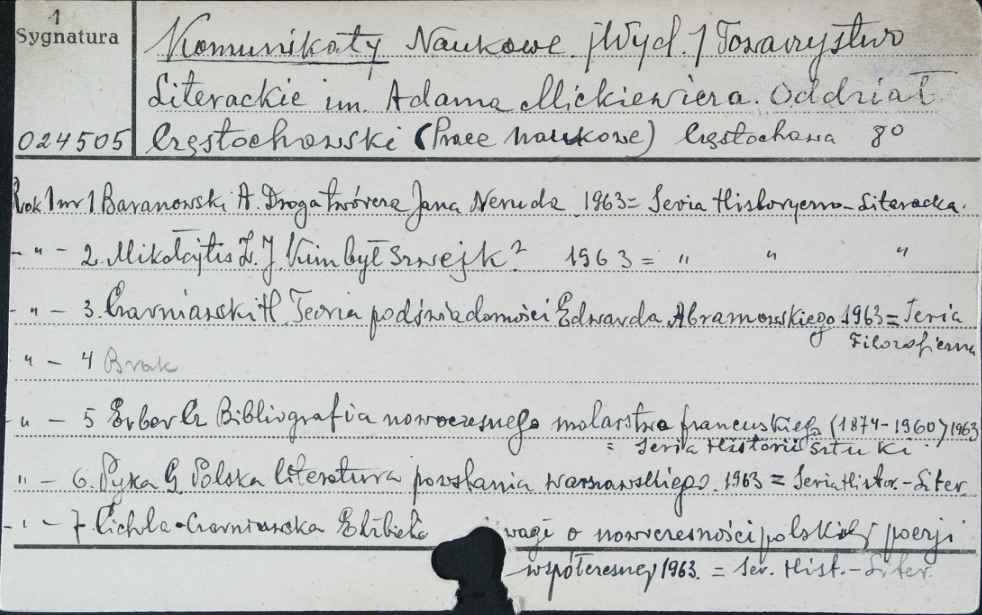 1
Sygnatura
024505
Komunikaty Naukowe. /Wyd./ Towarzystwo
Literackie im. Adama Mickiewicza. Oddział
Częstochowski (Prace Naukowe) Częstochowa 8°
Rok 1 nr 1 Baranowski A. Droga twórcza Jana Neruda 1963 = Seria Historyczno-Literacka.
- " - 2. Mikołajtis Z. J. Kim był Szwejk? 1963 = " " "
- " - 3. Czarniawski H. Teoria podświadomości Edwarda Abramowskiego 1963 = Seria
Filozoficzna
" - 4 Brak
- " - 5 Erber Cz. Bibliografia nowoczesnego malarstwa francuskiego (1874-1960) 1963
= Seria Historii Sztuki.
" - 6. Pyka G. Polska literatura powstania warszawskiego. 1963 = Seria Histor.-Liter.
- " - 7 Cichla-Czarniawska Elżbieta wagi o nowoczesności polskiej poezji
współczesnej 1963. = Ser. Hist.-Liter.